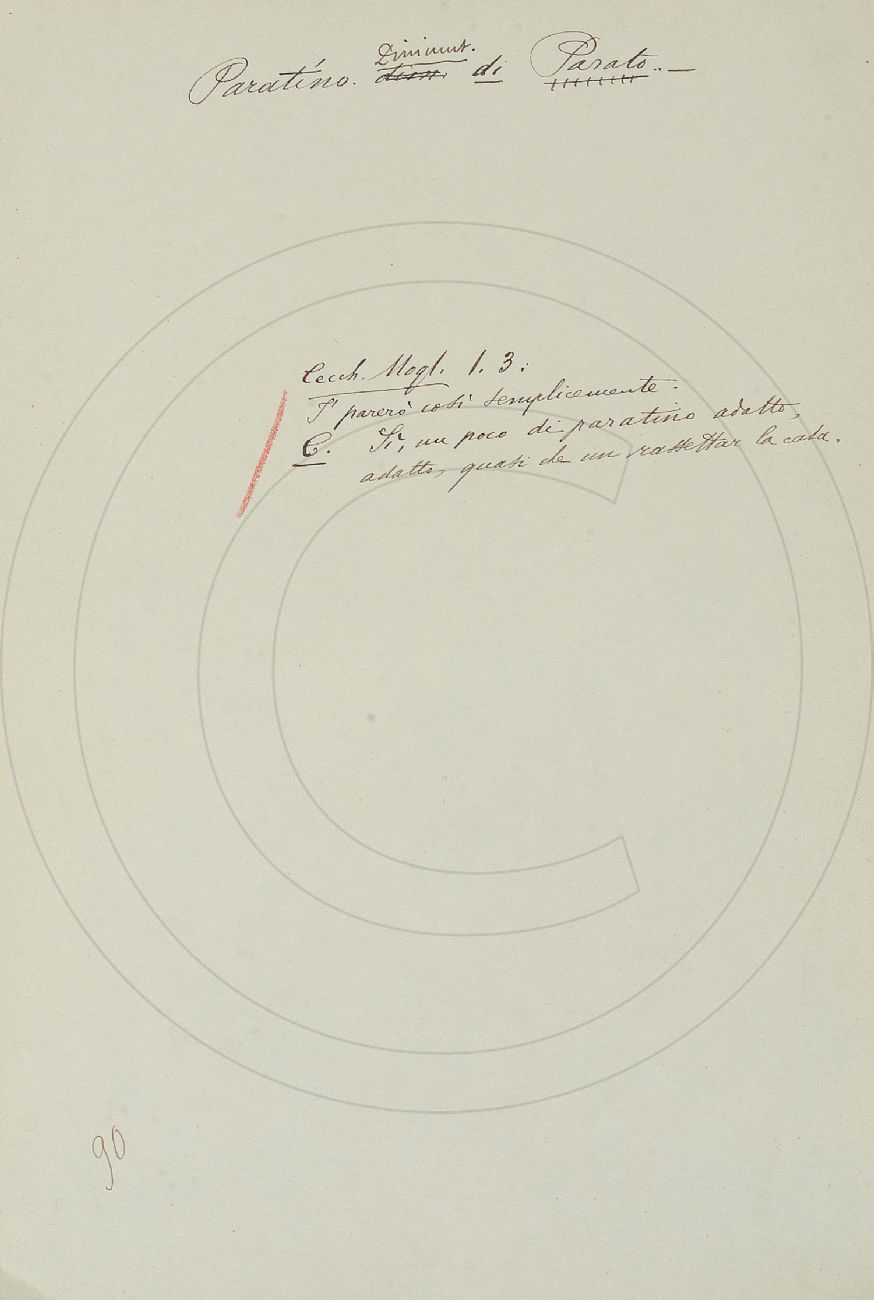 Paratíno. Diminut. di Parato. —
Cecch. Mogl. 1. 3:
I' parerò così semplicemente.
C. Sì, un poco di paratino adatto,
adatto, quasi che un rassettar la casa.
90